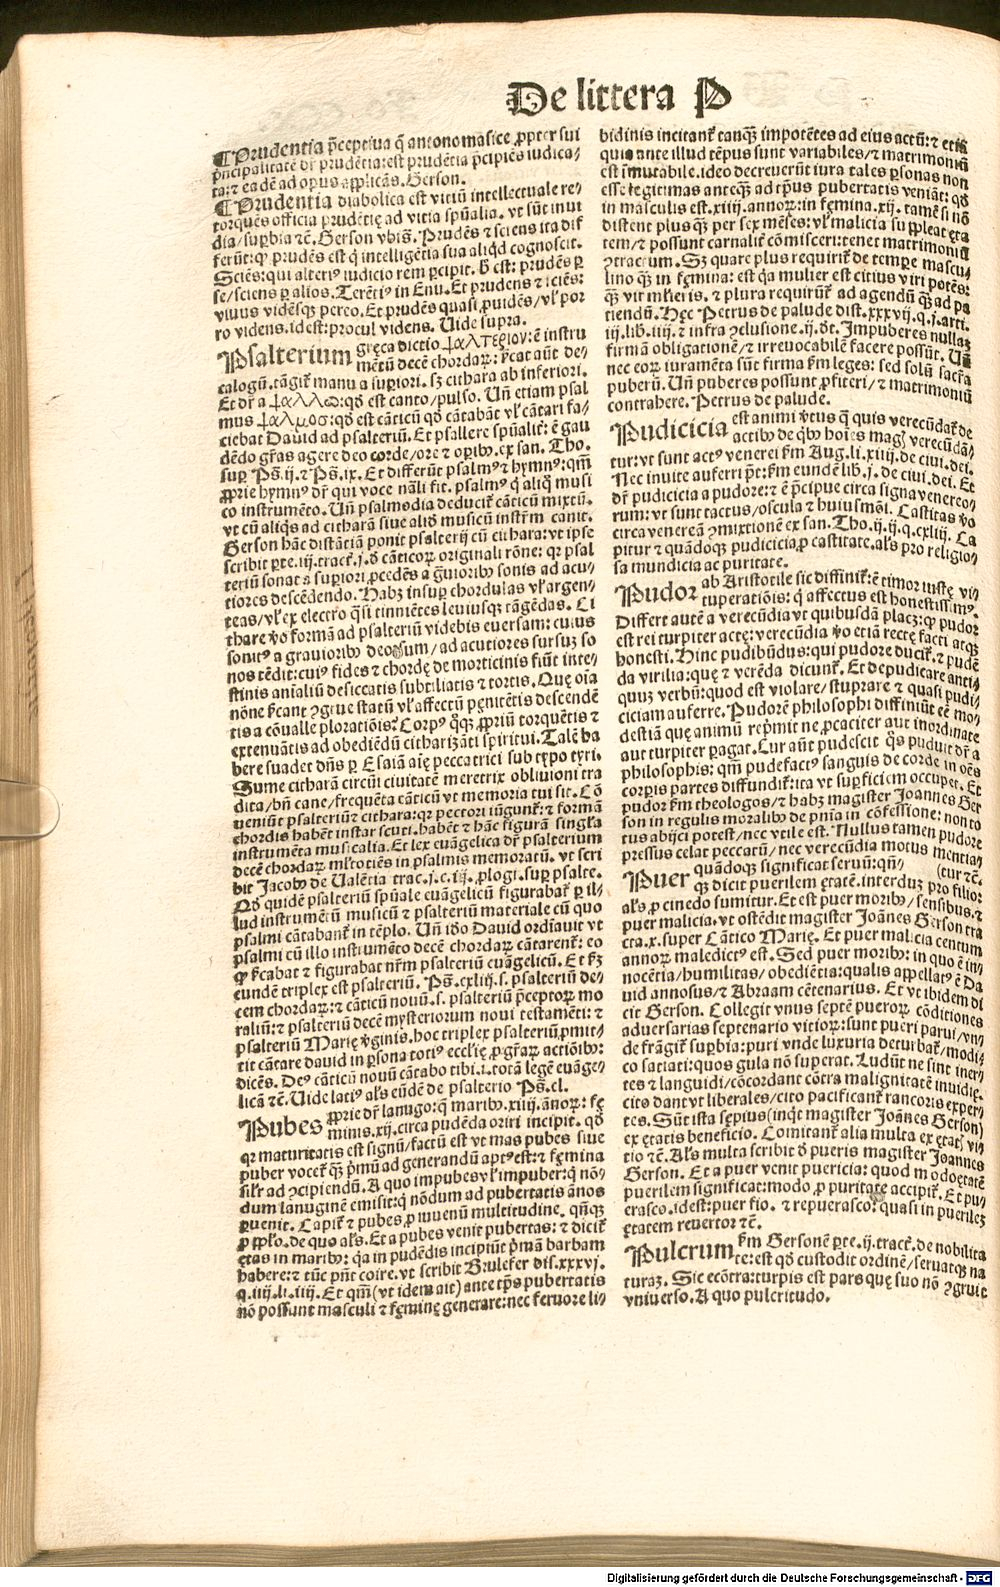 De littera P
¶Prudentia p̃ceptiua q̃ antonomasice ꝓpter sui
p̃ncipalitatẽ dr̃ prudẽtia: est prudẽtia p̃cipiẽs iudica-
ta: ⁊ ea dẽ ad opus applicãs. Gerson.
¶Prudentia diabolica est vitiũ intellectuale re-
torquẽs officia prudẽtię ad vitia spũalia. vt sũt inui
dia/ suꝑbia ⁊c̃. Gerson vbi s̃. Prudẽs ⁊ sciens ita dif
ferũt: qꝛ prudẽs est q̃ intelligẽtia sua aliqd cognoscit.
Sciẽs: qui alteriꝰ iudicio rem ꝑcipit. h̃ est: prudẽs ꝑ
se/ sciens ꝑ alios. Terẽtiꝰ in Enu. Et prudens ⁊ sciẽs:
viuus vidẽsqꝫ pereo. Et prudẽs quasi ꝓuidẽs/ vl̃ por
ro videns. idest: procul videns. Uide supra.
Psalterium gręca dictio ψαλτεριον: ẽ instru
mẽtũ decẽ chordaꝝ: ṽcat aũt de-
calogũ. tãgit̃ manu a suꝑiori. sꝫ cithara ab inferiori.
Et dr̃ a ψαλλω: qd̃ est canto/ pulso. Uñ etiam psal
mus ψαλμοσ: qd̃ est cãticũ qd̃ cãtabãt vl̃ cãtari fa-
ciebat Dauid ad psalteriũ. Et psallere spũalit̃: ẽ gau
dẽdo gr̃as agere deo corde/ ore ⁊ oꝑibꝰ. ex san. Tho.
suꝑ Ps̃. ij. ⁊ Ps̃. ix. Et differũt psalmꝰ ⁊ hymnꝰ: qm̃
ꝓprie hymnꝰ dr̃ qui voce nãli fit. psalmꝰ q̃ aliq̃ musi
co instrumẽto. Uñ psalmodia deducit̃ cãticũ mixtũ.
vt cũ aliqs̃ ad citharã siue aliđ musicũ instrm̃ canit.
Gerson hãc distãtiã ponit psalterij cũ cithara: vt ipse
scribit ꝑte. iij. tract̃. j. đ cãticoꝝ originali rõne: qꝛ psal
teriũ sonat a suꝑiori ꝓcedẽs a g̃uioribꝰ sonis ad acu-
tiores descẽdendo. Habꝫ insuꝑ chordulas vl̃ argen-
teas/ vl̃ ex electro q̃si tinniẽtes leuiusqꝫ tãgẽdas. Ci
thare ꝟo formã ad psalteriũ videbis euersam: cuius
sonitꝰ a grauioribꝰ deorsum/ ad acutiores sursuꝫ so
nos tẽdit: cuiꝰ fides ⁊ chordę de morticinis fiũt inte-
stinis aĩaliũ desiccatis subtiliatis ⁊ tortis. Quę oĩa
nõne ṽcant ꝯgrue statũ vl̃ affectũ pęnitẽtis descendẽ
tis a cõualle ploratiõis? Corpꝰ q̃qꝫ ꝓpriũ torquẽtis ⁊
extenuãtis ad obediẽdũ citharizãti spiritui. Talẽ ha
bere suadet dñs ꝑ Esaiã aĩę peccatrici sub typo tyri.
Sume citharã circũi ciuitatẽ meretrix obliuioni tra
dita/ bñ cane/ frequẽta cãticũ vt memoria tui sit. Cõ
ueniũt psalteriũ ⁊ cithara: qꝛ pectori iũgunt̃: ⁊ formã
chordis habẽt instar scuti. habẽt ⁊ hãc figurã singl̃a
instrumẽta musicalia. Et lex euãgelica dr̃ psalterium
decẽ chordaꝝ ml̃totiẽs in psalmis memoratũ. vt scri
bit Jacobꝰ de Ualẽtia trac. j. c. iij. ꝓlogi. suꝑ psalte.
Qđ quidẽ psalteriũ spũale euãgelicũ figurabat̃ ꝑ il-
lud instrumẽtũ musicũ ⁊ psalteriũ materiale cũ quo
psalmi cãtabant̃ in tẽplo. Uñ iđo Dauid ordiauit vt
psalmi cũ illo instrumẽto decẽ chordaꝝ cãtarent̃: eo
ꝙ ṽcabat ⁊ figurabat nr̃m psalteriũ euãgelicũ. Et ẜm
eundẽ triplex est psalteriũ. Ps̃. cxliij. s. psalteriũ de-
cem chordaꝝ: ⁊ cãticũ nouũ. s. psalteriũ p̃ceptoꝝ mo
raliũ: ⁊ psalteriũ decẽ mysteriorum noui testamẽti: ⁊
psalteriũ Marię ꝟginis. hoc triplex psalteriũ ꝓmit-
tit cãtare dauid in ꝑsona totiꝰ ecclię ꝓ gr̃aꝝ actiõibꝰ:
dicẽs. Deꝰ cãticũ nouũ cãtabo tibi. i. totã legẽ euãge-
licã ⁊c̃. Uide latiꝰ al̃s eũdẽ de psalterio Ps̃. cl.
Pubes ꝓprie dr̃ lanugo: q̃ maribꝰ. xiiij. ãnoꝝ: fę
minis. xij. circa pudẽda oriri incipit. qđ
qꝛ maturitatis est signũ/ factũ est vt mas pubes siue
puber vocet̃ qꝫ p̃mũ ad generandũ aptꝰ est: ⁊ fęmina
sil̃r ad ꝯcipiendũ. A quo impubes vl̃ impuber: q̃ nõ-
dum lanuginẽ emisit: q̃ nõdum ad pubertatis ãnos
ꝑuenit. Capit̃ ⁊ pubes ꝓ iuuenũ multitudine. qñqꝫ
ꝓ pplo. de quo al̃s. Et a pubes venit pubertas: ⁊ dicit̃
ętas in maribꝰ: q̃ in pudẽdis incipiũt p̃mã barbam
habere: ⁊ tũc pñt coire. vt scribit Brulefer dis. xxxvj.
q. iiij. li. iiij. Et qm̃ (vt idem ait) ante tps̃ pubertatis
nõ possunt masculi ⁊ fęminę generare: nec feruore li-
bidinis incitant̃ tanqꝫ impotẽtes ad eius actũ: ⁊ etiã
quia ante illud tẽpus sunt variabiles/ ⁊ matrimoniũ
est ĩmutabile. ideo decreuerũt iura tales ꝑsonas non
esse legitimas anteqꝫ ad tps̃ pubertatis veniãt: qđ
in masculis est. xiiij. annoꝝ: in fęmina. xij. tamẽ si nõ
distent plus qꝫ per sex mẽses: vl̃ malicia suppleat ęta
tem/ ⁊ possunt carnalit̃ cõmisceri: tenet matrimoniũ
ꝯtractum. Sꝫ quare plus requirit̃ de tempe mascu-
lino qꝫ in fęmina: est q̃a mulier est citius viri potẽs:
qꝫ vir mlieris. ⁊ plura requirũt̃ ad agendũ qꝫ ad pa
tiendũ. Hęc Petrus de palude dist. xxxvij. q. j. arti.
iij. lib. iiij. ⁊ infra ꝯclusione. ij. đt. Impuberes nullaꝫ
firmã obligationẽ/ ⁊ irreuocabilẽ facere possũt. Uñ
nec eoꝝ iuramẽta sũt firma ẜm leges: sed solũ sacr̃a
puberũ. Uñ puberes possunt ꝓfiteri/ ⁊ matrimoniũ
contrahere. Petrus de palude.
Pudicicia est animi ṽtus q̃ quis verecũdat̃ de
actibꝰ de qbꝰ hoĩes magꝭ verecũdã-
tur: vt sunt actꝰ venerei ẜm Aug. li. xiiij. de ciui. dei.
Nec inuite auferri pt̃: ẜm eundẽ lib. j. de ciui. dei. Et
dr̃ pudicicia a pudore: ⁊ ẽ p̃cipue circa signa venereo-
rum: vt sunt tactus/ oscula ⁊ huiusmõi. Castitas ꝟo
circa venereã ꝯmixtionẽ ex san. Tho. ij. ij. q. cxliij. Ca
pitur ⁊ quãdoqꝫ pudicicia ꝓ castitate. al̃s pro religio-
sa mundicia ac puritate.
Pudor ab Aristotile sic diffinit̃: ẽ timor iustę vi-
tuperatiõis: q̃ affectus est honestissimꝰ.
Differt autẽ a verecũdia vt quibusdã placꝫ: qꝛ pudor
est rei turpiter actę: verecũdia ꝟo etiã rectę facti atqꝫ
honesti. Hinc pudibũdus: qui pudore ducit̃. ⁊ pudẽ
da virilia: quę ⁊ verẽda dicunt̃. Et depudicare anti-
quuꝫ verbũ: quod est violare/ stuprare ⁊ quasi pudi-
ciciam auferre. Pudorẽ philosophi diffiniũt eẽ mo-
destiã quę animũ rep̃mit ne ꝓcaciter aut inordinate
aut turpiter ꝑagat. Cur aũt pudescit q̃s puduit dr̃ a
philosophis: qm̃ pudefactꝰ sanguis de corde in oẽs
corꝑis partes diffundit̃: ita vt suꝑficiem occupet. Et
pudor ẜm theologos/ ⁊ habꝫ magister Joannes Ger
son in regulis moralibꝰ de pñia in cõfessione: non to
tus abijci potest/ nec vtile est. Nullus tamen pudore
pressus celat peccatũ/ nec verecũdia motus mentia-
(tur ⁊c̃.
Puer quãdoqꝫ significat seruũ: qñ-
qꝫ dicit puerilem ętatẽ. interduꝫ pro filio:
al̃s ꝓ cinedo sumitur. Et est puer moribꝰ/ sensibus. ⁊
puer malicia. vt ostẽdit magister Joãnes Gerson tra
cta. x. super Cãtico Marię. Et puer malicia centum
annoꝝ maledictꝰ est. Sed puer moribꝰ: in quo ẽ in-
nocẽtia/ humilitas/ obediẽtia: qualis appellatꝰ ẽ Da
uid annosus/ ⁊ Abraam cẽtenarius. Et vt ibidem di
cit Gerson. Collegit vnus septẽ pueroꝝ cõditiones
aduersarias septenario vitioꝝ: sunt pueri parui/ vn-
de frãgit̃ suꝑbia: puri vnde luxuria deturbat̃/ modi-
co satiati: quos gula nõ suꝑat. Ludũt ne sint iner-
tes ⁊ languidi/ cõcordant cõtra malignitatẽ inuidię.
cito dant vt liberales/ cito pacificant̃ rancoris exper-
tes. Sũt ista sępius (inqt̃ magister Joãnes Gerson)
ex ętatis beneficio. Comitant̃ alia multa ex ętatꝭ vi-
tio ⁊c̃. Al̃s multa scribit đ pueris magister Joannes
Gerson. Et a puer venit puericia: quod modo ętatẽ
puerilem significat: modo ꝓ puritate accipit̃. Et pu-
erasco. idest: puer fio. ⁊ repuerasco: quasi in puerileꝫ
ętatem reuertor ⁊c̃.
Pulcrum ẜm Gersonẽ ꝑte. ij. tract̃. de nobilita
te: est qđ custodit ordinẽ/ seruatqꝫ na
turaꝫ. Sic ecõtra: turpis est pars quę suo nõ ꝯgruit
vniuerso. A quo pulcritudo.
Digitalisierung gefördert durch die Deutsche Forschungsgemeinschaft - DFG